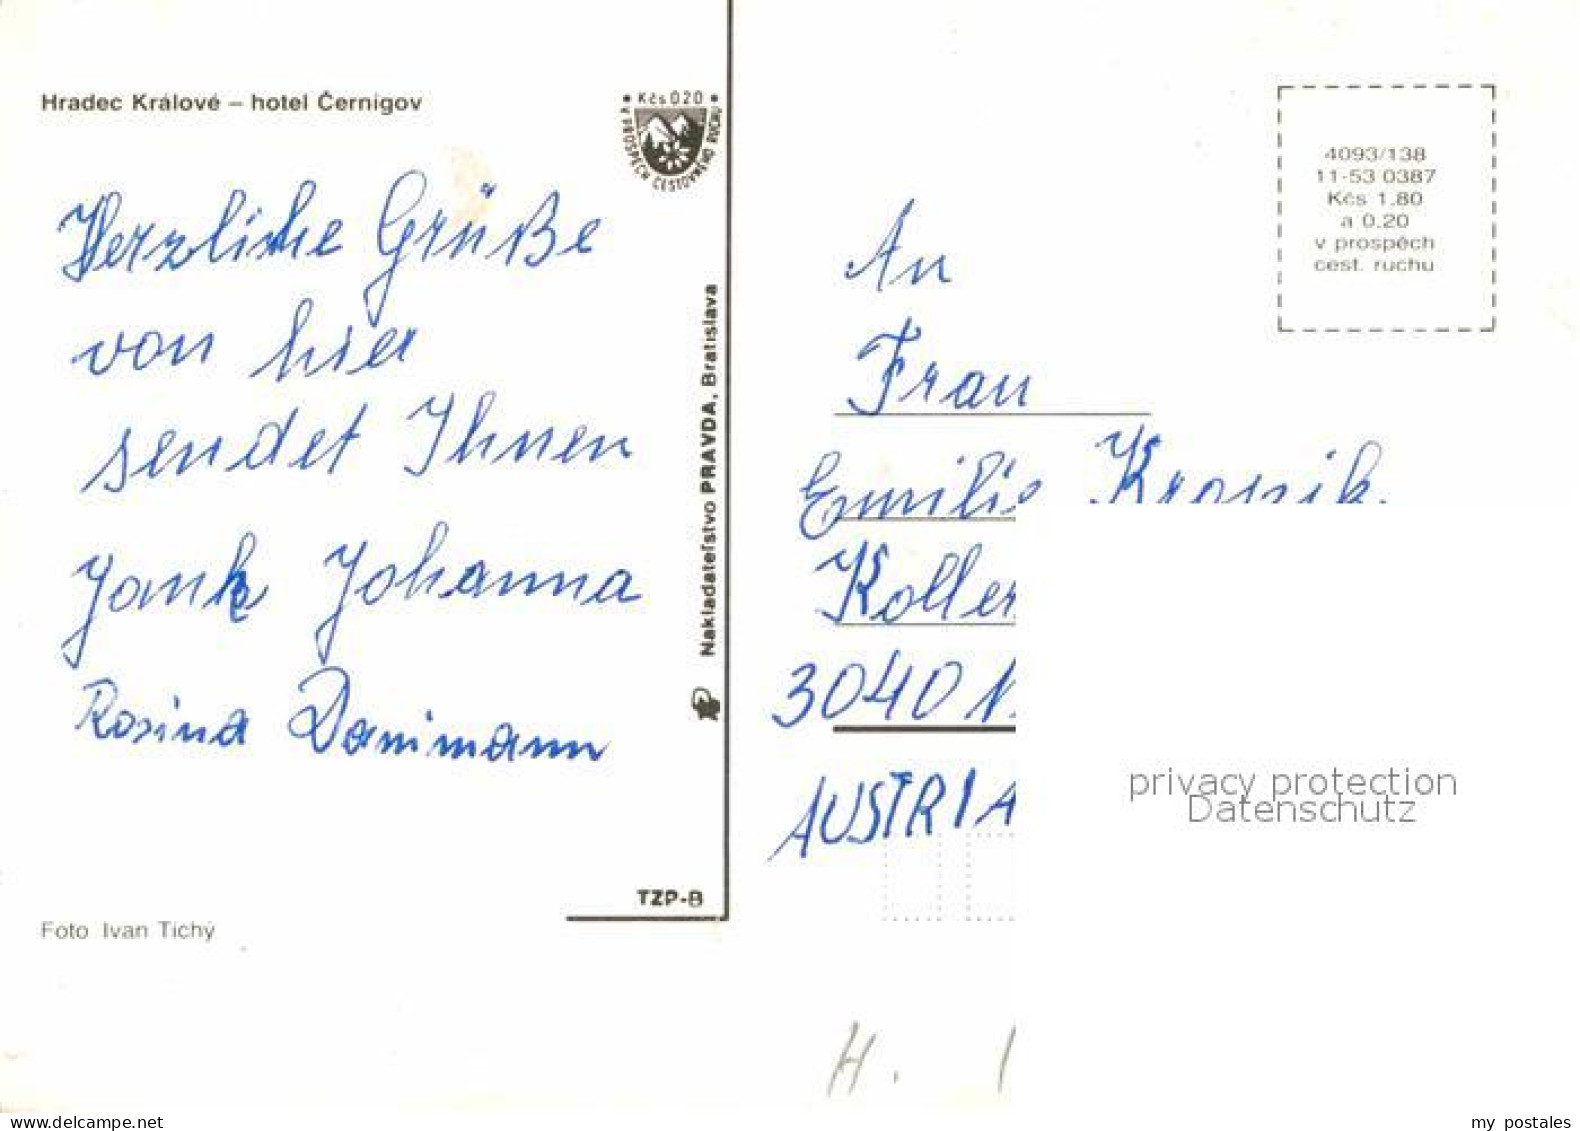 Hradec Králové – hotel Černigov
Kčs 020
V PROSPĚCH CESTOVNÉHO RUCHU
Herzliche Grüße
von hier
sendet Ihnen
Johanna
Rosina Danimann
Nakladateľstvo PRAVDA, Bratislava
TZP-B
Foto Ivan Tichý
4093/138
11-53 0387
Kčs 1.80
a 0.20
v prospěch
cest. ruchu
An
Frau
Emilie
Koller
3040 N
AUSTRIA
privacy protection
Datenschutz
H.
my postales